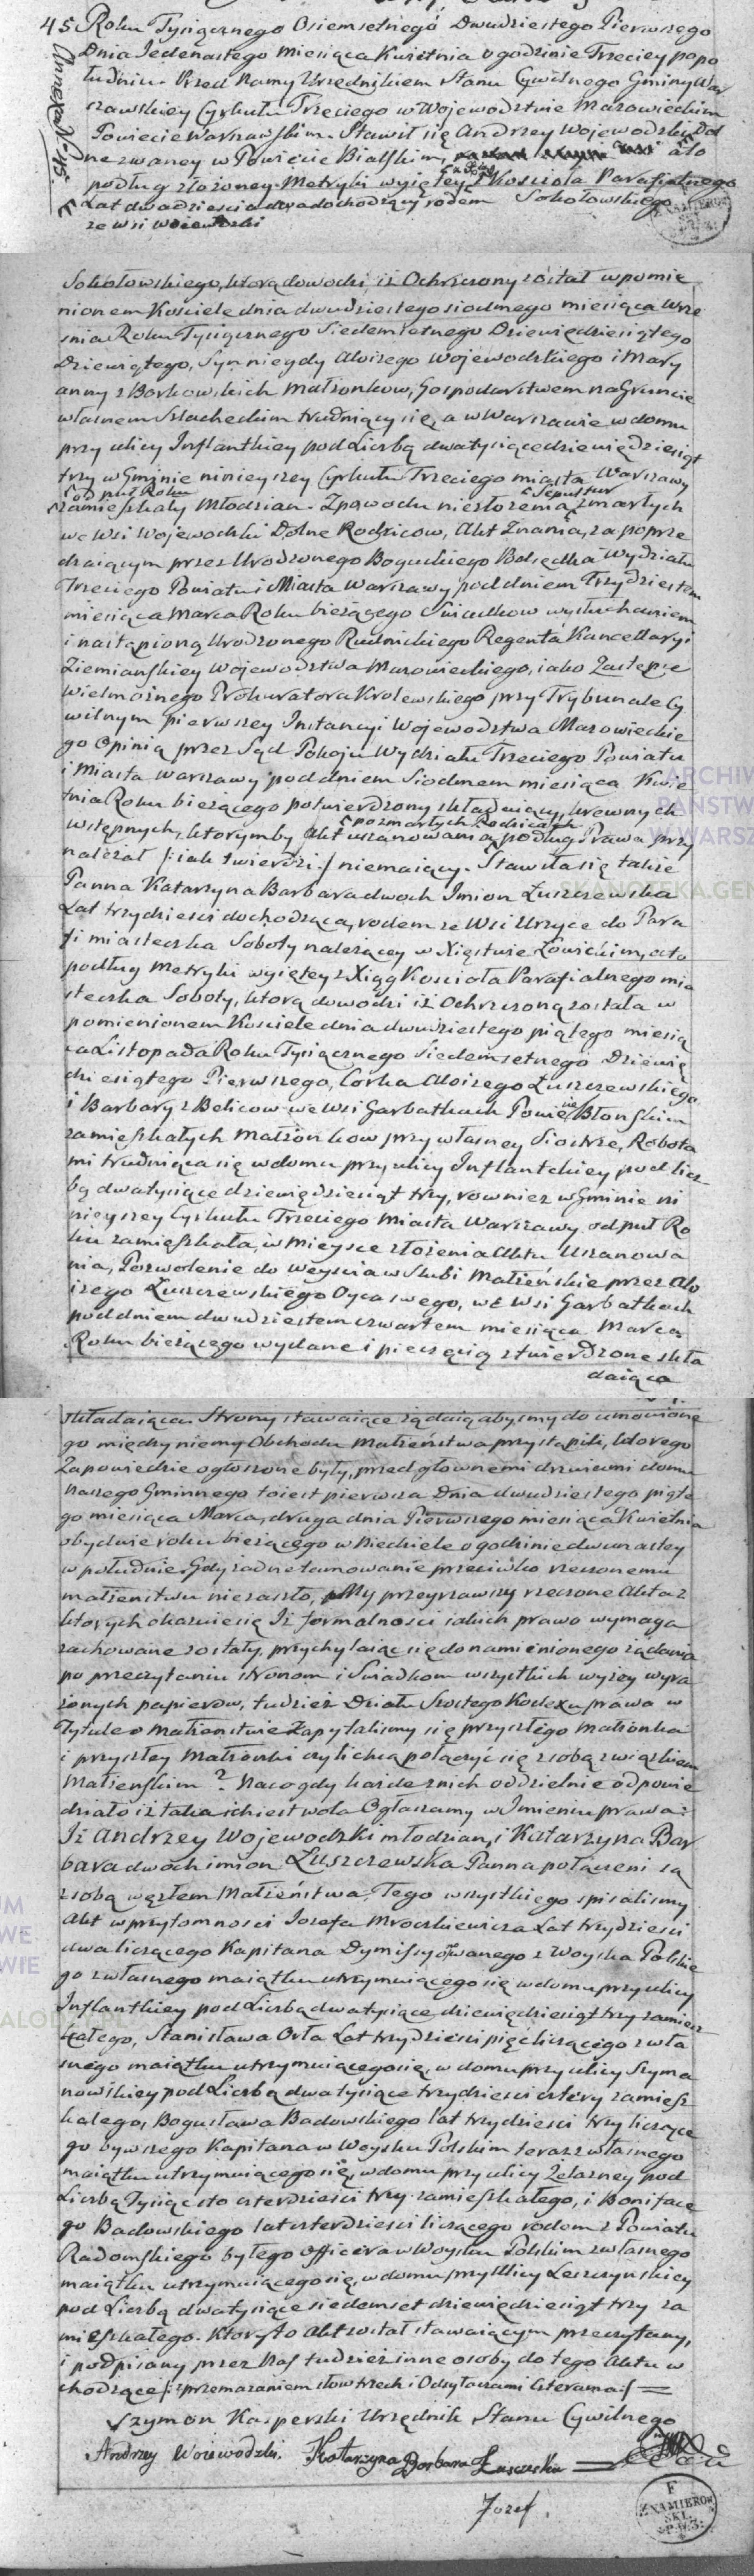 45 Roku Tysiącznego Osiemsetnego Dwudziestego Pierwszego
Dnia Jedenastego miesiąca Kwietnia o godzinie Trzeciey popo
łudniu. Przed Namy Urzędnikiem Stanu Cywilnego Gminy War
szawskiey Cyrkułu Trzeciego w Wojewodztwie Mazowieckim
Powiecie Warszawskim. Stawił się Andrzey Wojewodzki
ne zwaney w Powiecie Bialskim, ato
podług złożoney Metryki wyiętey z Kościoła Parafialnego
Lat dwadzieścia dwa dochodzący rodem Sokołowskiego
ze Wsi Woiewodzki
Annexa N 45.
Sokołowskiego, którą dowodzi iż Ochrzczony został wpomie
nionem Kościele dnia dwudziestego siodmego miesiąca Wrze
śnia Roku Tysiącznego Siedemsetnego Dziewiędziesiątego
Dziewiątego, Syn niegdy Aloizego Wojewodzkiego i Mary
anny z Borkowskich Małżonkow, Gospodarstwem na Gruncie
własnem Szlacheckim trudniący się, a w Warszawie w domu
przy ulicy Inflantkiey pod Liczbą dwatysiącedziewiędziesiąt
trzy w Gminie ninieyszey Cyrkułu Trzeciego miasta Warszawy
od puł Roku
zamieszkały Młodzian. Zpowodu niezłożenia Sepultur zmarłych
we Wsi Wojewodzki Dolne Rodzicow, Akt Znania, za poprze
dzaiącym przez Urodzonego Boguckiego Podsędka Wydziału
Trzeciego Powiatu i Miasta Warszawy pod dniem Trzydziestem
miesiąca Marca Roku bieżącego Swiadkow wysłuchaniem
i nastąpioną Urodzonego Rudnickiego Regenta Kancellaryi
Ziemianskiey Wojewodztwa Mazowieckiego, iako Zastępce
Wielmożnego Prokuratora Krolewskiego przy Trybunale Cy
wilnym pierwszey Instancyi Wojewodztwa Mazowieckie
go Opinią przez Sąd Pokoju Wydziału Trzeciego Powiatu
i Miasta Warszawy pod dniem Siodmem miesiąca Kwie
tnia Roku bieżącego potwierdzony składaiący, krewnych
wstępnych, ktorymby Akt uszanowania po zmarłych Rodzicach podług Prawa przy
należał /: iak twierdzi :/ niemaiący. Stawiła się także
Panna Katarzyna Barbara dwoch Imion Łuszczewska
Lat trzydzieści dochodząca, rodem ze Wsi Urzyce do Para
fi miasteczka Soboty należącey w Xięstwie Łowickim, ato
podług Metryki wyiętey z Xiąg Kościoła Parafialnego mia
steczka Soboty, którą dowodzi iż Ochrzczoną została w
pomienionem Kościele dnia dwudziestego piątego miesią
ca Listopada Roku Tysiącznego Siedemsetnego Dziewię
dziesiątego Pierwszego, Corka Aloizego Łuszczewskiego
i Barbary z Belicow we Wsi Garbatkach Powie Błonskim
zamieszkałych Małżonkow przy własney Siostrze, Robota
mi trudniąca się w domu przy ulicy Inflantckiey pod licz
bą dwatysiące dziewiędziesiąt trzy, rownież w Gminie ni
nieyszey Cyrkułu Trzeciego Miasta Warszawy od puł Ro
ku zamieszkała, w mieysce złożenia Aktu Uszanowa
nia, Pozwolenie do weyścia w Slubi Małżeńskie przez Alo
izego Łuszczewskiego Oyca swego, we Wsi Garbatkach
pod dniem dwudziestem czwartem miesiąca Marca
Roku bieżącego wydane i pieczęcią ztwierdzone skła
daiąca
składaiąca. Strony stawaiące żądaią abyśmy do umowione
go między niemy Obchodu małżeństwa przystąpili, którego
Zapowiedzie ogłoszone były, przed głownemi drzwiami domu
Naszego Gminnego toiest pierwsza Dnia dwudziestego piąte
go miesiąca Marca, druga dnia Pierwszego miesiąca Kwietnia
obydwie roku bieżącego w Niedziele o godzinie dwunastey
w południe. Gdy żadne tamowanie przeciwko rzeczonemu
małżenstwu nie zaszło, My przeyrzawszy rzeczone Akta z
ktorych okazuie się Iż formalności iakich prawo wymaga
zachowane zostały, przychylaiąc się do namienionego żądania
po przeczytaniu stronom i Swiadkom wszystkich wyżey wyra
żonych papierow, tudzież Działu Szostego Kodexu prawa w
Tytule o Małżenstwie Zapytaliśmy się przyszłego Małżonka
i przyszłey Małżonki czyli chcą połączyć się z sobą związkiem
Małżeńskim? Na co gdy każde z nich oddzielnie odpowie
działo iż taka ich iest wola Ogłaszamy w Imieniu prawa:
Iż Andrzey Wojewodzki młodzian, i Katarzyna Bar
bara dwoch imion Łuszczewska Panna połączeni są
z sobą węzłem Małżeństwa. Tego wszystkiego spisaliśmy
Akt w przytomności Jozefa Mroczkiewicza Lat trzydzieści
dwa liczącego Kapitana Dymissyowanego z Woyska Polskie
go z własnego maiątku utrzymuiącego się w domu przy ulicy
Inflantkiey pod Liczbą dwatysiące dziewiędziesiąt trzy zamiesz
kałego, Stanisława Orła Lat trzydzieści pięć liczącego z wła
snego maiątku utrzymuiącego się, w domu przy ulicy Szyma
nowskiey pod Liczbą dwatysiące trzydzieści cztery zamiesz
kałego, Bogusława Badowskiego lat trzydzieści trzy liczące
go bywszego Kapitana w Woysku Polskim teraz z własnego
maiątku utrzymuiącego się, w domu przy ulicy Żelazney pod
Liczbą Tysiąc sto czterdzieści trzy zamieszkałego, i Boniface
go Badowskiego lat czterdzieści liczącego rodem z Powiatu
Radomskiego byłego officera w Woysku Polskim z własnego
maiątku utrzymuiącego się, w domu przy Ulicy Leszczynskiey
pod Liczbą dwatysiące siedemset dziewiędziesiąt trzy za
mieszkałego. Ktoryto Akt został stawaiącym przeczytany,
i podpisany przez Nas tudzież inne osoby do tego Aktu w
chodzące /: z przemazaniem słow trzech i Odsyłaczami czterema :/
Szymon Kasperski Urzędnik Stanu Cywilnego
Andrzey Woiewodzki. Katarzyna Barbara Łuszczeska
Jozef.
F
ZNAMIEROW
SKI.